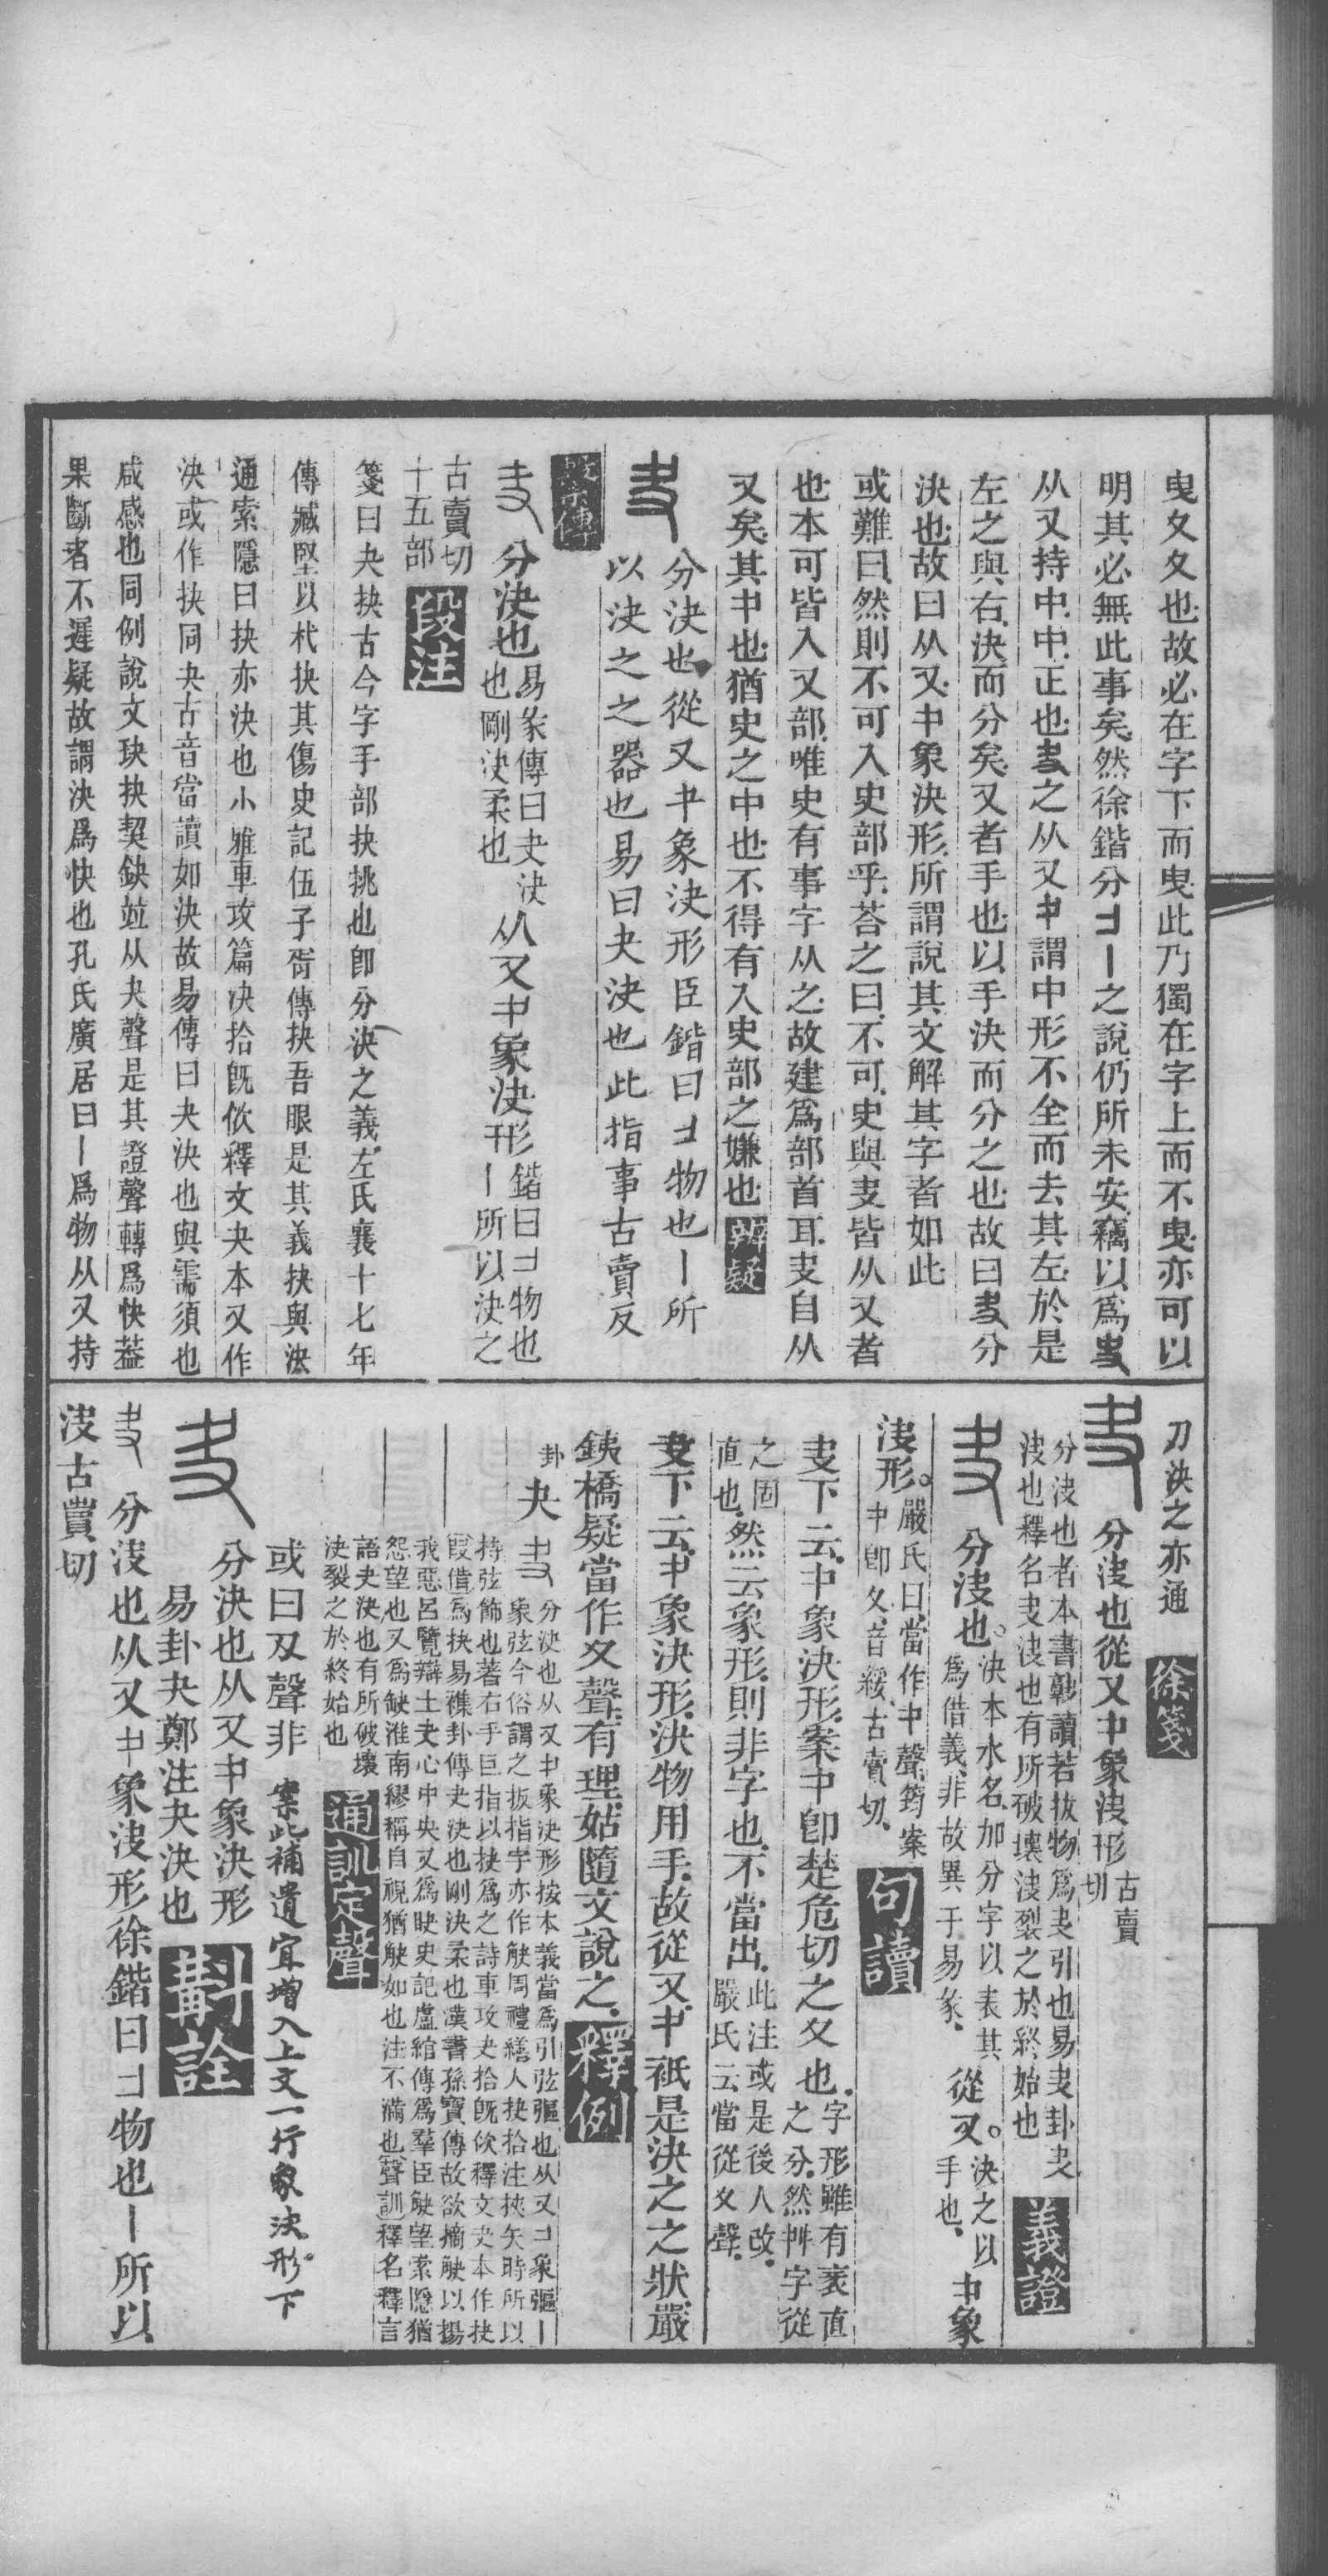 曳夂夂也故必在字下而曳此乃獨在字上而不曳亦可以
明其必無此事矣然徐鍇分コ丨之說仍所未安竊以爲叏
从又持中中正也叏之从又𠁧謂中形不全而去其左於是
左之與右決而分矣又者手也以手決而分之也故曰叏分
決也故曰从又𠁧象決形所謂說其文解其字者如此
或難曰然則不可入史部乎荅之曰不可史與叏皆从又者
也本可皆入又部唯史有事字从之故建爲部首耳叏自从
又矣其𠁧也猶史之中也不得有入史部之嫌也 辨疑
分決也從又𠁧象決形臣鍇曰コ物也丨所
以決之之器也易曰夬決也此指事古賣反
繫傳
叏 分決也 易彖傳曰夬決
也剛決柔也 从又𠁧象決形 鍇曰コ物也
丨所以決之
古賣切
十五部 段注
箋曰夬抉古今字手部抉挑也卽分決之義左氏襄十七年
傳臧堅以杙抉其傷史記伍子胥傳抉吾眼是其義抉與決
通索隱曰抉亦決也小雅車攻篇決拾旣佽釋文夬本又作
決或作抉同夬古音當讀如決故易傳曰夬決也與需須也
咸感也同例說文玦抉契缺竝从夬聲是其證聲轉爲快葢
果斷者不遲疑故謂決爲快也孔氏廣居曰丨爲物从又持
刀決之亦通 徐箋
分決也從又𠁧象決形 古賣
切
分決也者本書𢾭讀若拔物爲夬引也易夬卦夬
決也釋名夬決也有所破壞決裂之於終始也 義證
分決也。決本水名加分字以表其
爲借義非故異于易彖。 從又。決之以
手也。 𠁧象
決形。嚴氏曰當作𠁧聲筠案
𠁧卽夂音綏古賣切。 句讀
叏下云𠁧象決形案𠁧卽楚危切之夂也。字形雖有衺直
之分然字從
之固
直也。然云象形則非字也不當出。此注或是後人改。
嚴氏云當從夂聲。
叏下云𠁧象決形決物用手故從又𠁧祇是決之之狀嚴
銕橋疑當作夂聲有理姑隨文說之。 釋例
卦 夬 叏 分決也从又𠁧象決形按本義當爲引弦彄也从又コ象彄丨
象弦今俗謂之扳指字亦作觖周禮繕人抉拾注挾矢時所以
持弦飾也著右手巨指以抉爲之詩車攻夬拾旣佽釋文夬本作抉
叚借爲抉易襍卦傳夬決也剛決柔也漢書孫寶傳故欲擿觖以揚
我惡呂覽辯土夬心中央又爲䀗史記盧綰傳爲羣臣觖望索隱猶
怨望也又爲缺淮南繆稱自視猶觖如也注不滿也聲訓釋名釋言
語夬決也有所破壞
決裂之於終始也 通訓定聲
或曰叉聲非 案此補遺宜增入上文一行象決形。下
分決也从又𠁧象決形
易卦夬鄭注夬決也 斠詮
叏 分決也从又𠁧象決形徐鍇曰コ物也丨所以
決古賣切